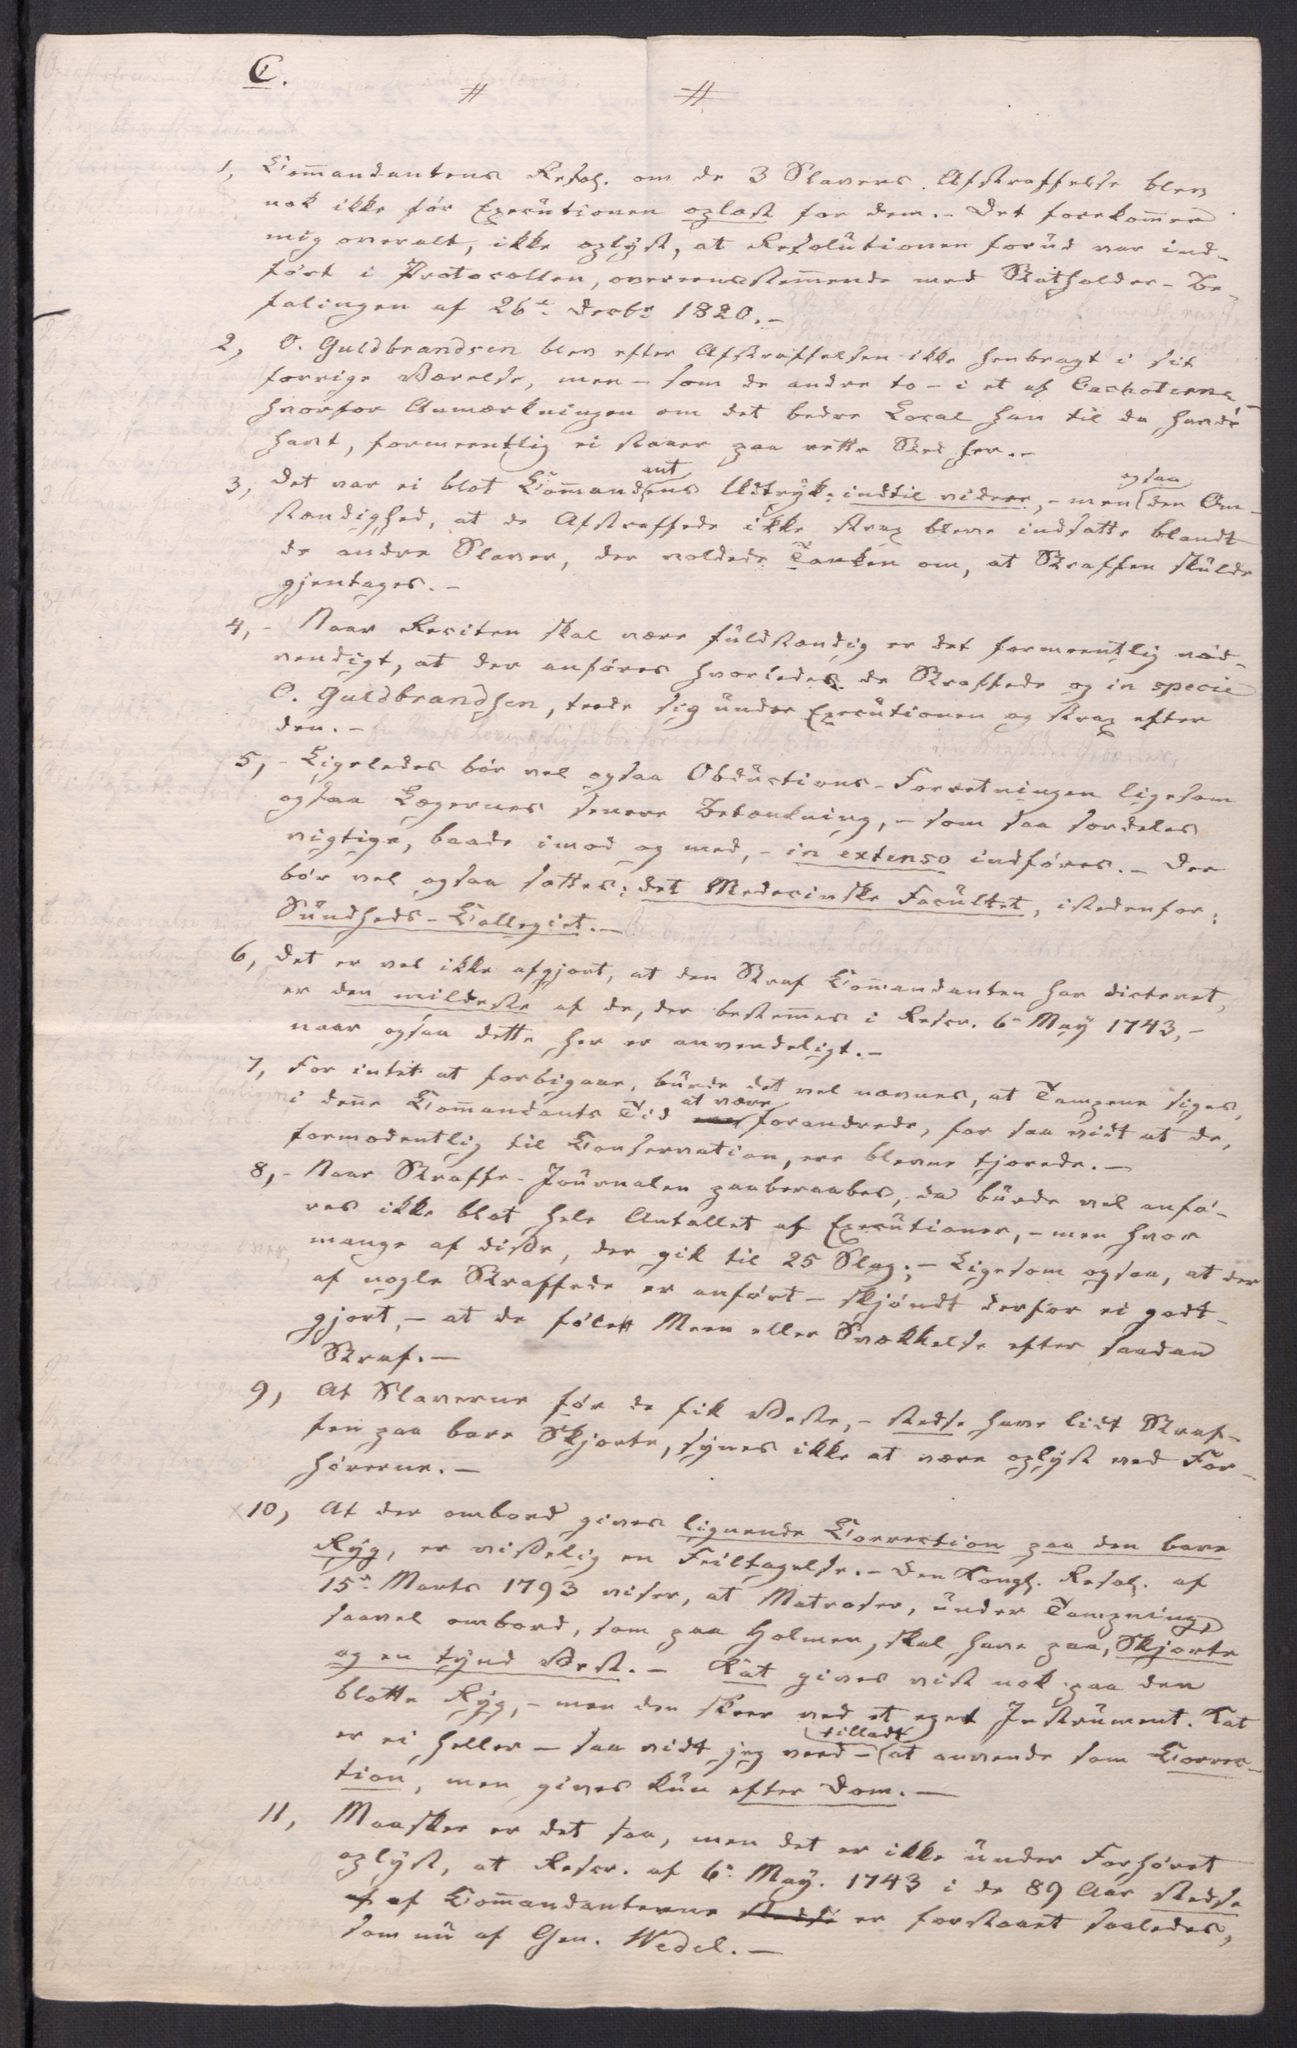 C.
1, Com̅andantens Resol. om de 3 Slavers Afstraffelse blev
nok ikke før Execütionen oplæst for dem. - Det forekom̅er
mig overalt, ikke oplÿst, at Resolütionen forüd var ind-
ført i Protocollen, overeensstem̅ende med Statholder-Be-
falingen af 26de Decbr 1820. -
2, O. Guldbrandsen blev efter Afstraffelsen ikke henbragt i sit
forrige Værelse, men - som de andre to - i et af Cachoterne -
hvorfor Anmærkningen om det bedre Local han til da havde
havt, formeentlig ei staaer paa rette Sted her. -
3, Det var ei blot Com̅andantens Udtryk: indtil videre, - men ogsaa den Om-
stændighed, at de Afstraffede ikke strax bleve indsatte blandt
de andre Slaver, der voldede Tanken om, at Straffen skülde
gjentages. -
4, - Naar Reciten skal være füldstændig er det formeentlig nød-
vendigt, at der anføres hvorledes de Straffede og in specie
O. Guldbrandsen, teede sig ünder Execütionen og strax efter
den. -
5, - Ligeledes bør vel ogsaa Obdüctions-Forretningen ligesom
ogsaa Lægernes senere Betænkning, - som saa særdeles
vigtige, baade imod og med, - in extenso indføres. - Der
bør vel ogsaa sættes: det Medecinske Facültet, istedenfor:
Sündheds-Collegiet. -
6, Det er vel ikke afgjort, at den Straf Com̅andanten har dicteret,
er den mildeste af de, der bestem̅es i Rescr. 6te May 1743, -
naar ogsaa dette her er anvendeligt. -
7, For intet at forbigaae, bürde det vel nævnes, at Tampene siges,
i den̅e Com̅andants Tid at være forandrede, for saa vidt at de,
formodentlig til Conservation, ere blevne tjærede. -
8, - Naar Straffe-Joürnalen paaberaabes, da bürde vel anfø-
res ikke blot hele Antallet af Execütioner, - men hvor
mange af disse, der gik til 25 Slag; - Ligesom ogsaa, at der
af nogle Straffede er anført - skjøndt derfor ei godt-
gjort, - at de følte Meen eller Svækkelse efter saadan
Straf. -
9, At Slaverne før de fik Veste, - stedse have lidt Straf-
fen paa bare Skjorte, synes ikke at være oplÿst ved For-
hørerne. -
10, At der ombord gives lignende Correction paa den bare
Rÿg, er visselig en Feiltagelse. - Den Kongl. Resol. af
15de Marts 1793 viser, at Matroser, ünder Tampning,
saavel ombord, som paa Holmen, skal have paa, Skjorte
og en tÿnd Vest. - Kat gives vist nok paa den
blotte Rÿg, - men den skeer ved et eget Instrüment. Kat
er ei heller - saa vidt jeg veed - tilladt at anvende som Correc-
tion, men gives kün efter Dom. -
11, Maaskee er det saa, men det er ikke ünder Forhøret
oplÿst, at Rescr. af 6te May 1743 i de 89 Aar stedse
af Com̅andanterne er forstaaet saaledes,
som nü af Gen. Wedel. -